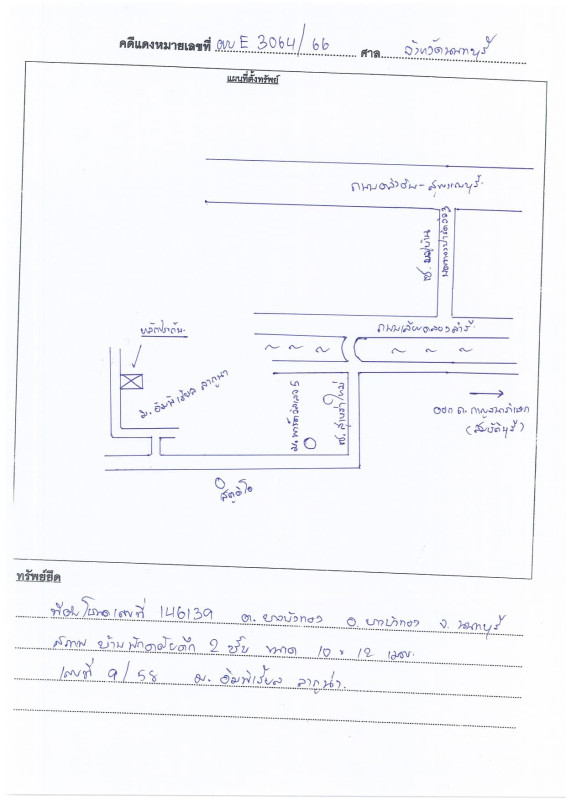 คดีแดงหมายเลขที่ ผบ E 3064/66 ศาล จังหวัดนนทบุรี
แผนที่ตั้งทรัพย์
ถนนตลิ่งชัน-สุพรรณบุรี
ซ. หมู่บ้าน
ถนนเลียบคลองลำรี
หลักประกัน
ม. อิมพีเรียล ลากูน่า
ซ. สุเหร่าใหม่
ออก ถ. กาญจนาภิเษก
สตูดิโอ
ทรัพย์ยึด
ที่ดินโฉนดเลขที่ 146139 ต. บางบัวทอง อ. บางบัวทอง จ. นนทบุรี
สภาพ บ้านพักอาศัยตึก 2 ชั้น ขนาด 10 x 12 เมตร
เลขที่ 9/58 ม. อิมพีเรียล ลากูน่า